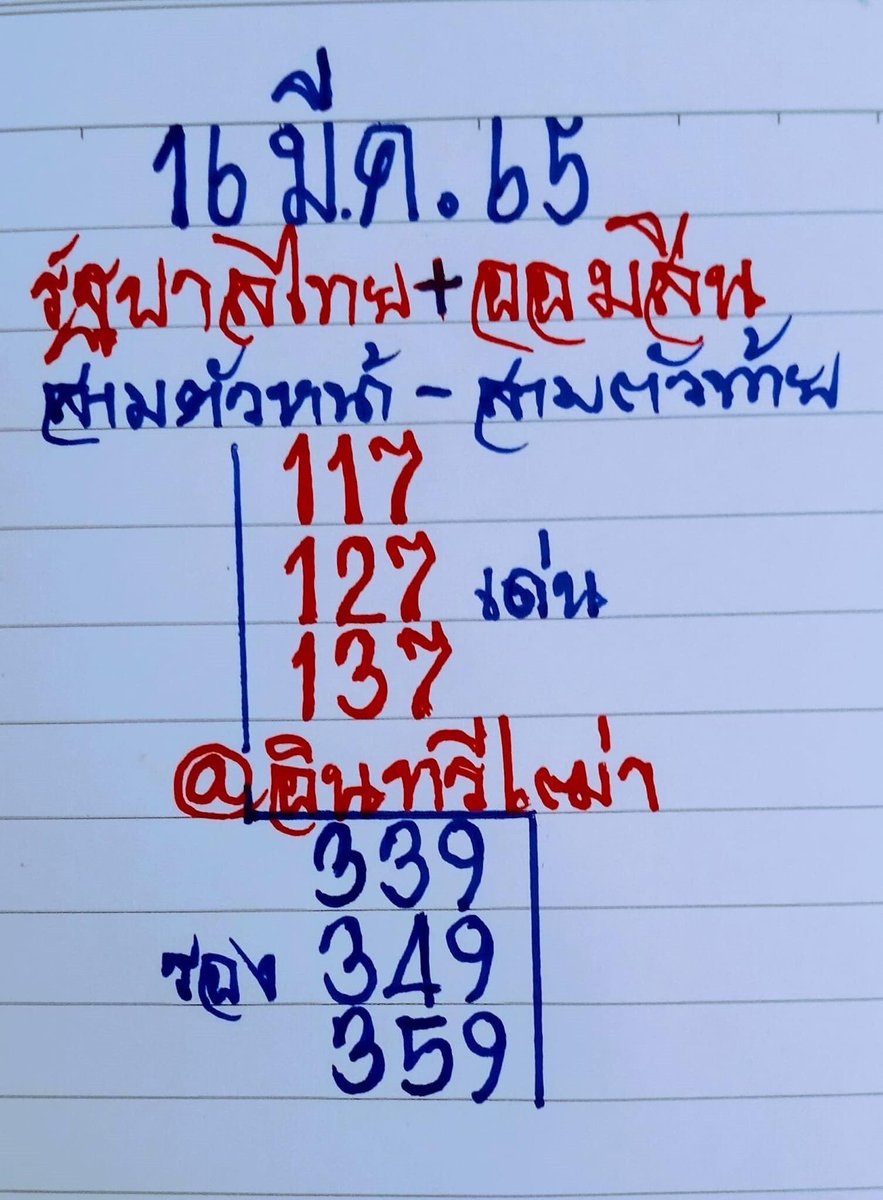 16 มี.ค. 65
รัฐบาลไทย+ออมสิน
สามตัวหน้า - สามตัวท้าย
117
127 เด่น
137
@อินทรีเฒ่า
339
รอง 349
359